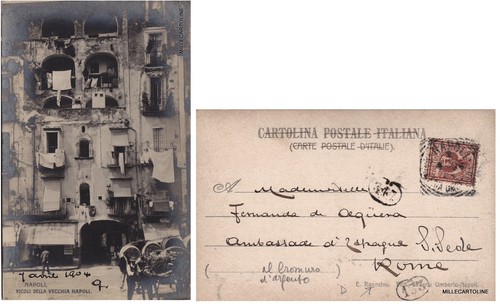 MILLECARTOLINE
7 avril 1904
NAPOLI.
VICOLI DELLA VECCHIA NAPOLI.
CARTOLINA POSTALE ITALIANA
(CARTE POSTALE D'ITALIE).
A Mademoiselle
Fernanda de Agüera
Ambassade d'Espagne S. Sede
Rome
(al bromuro
d'argento)
E. Ragozino Galleria Umberto-Napoli
MILLECARTOLINE